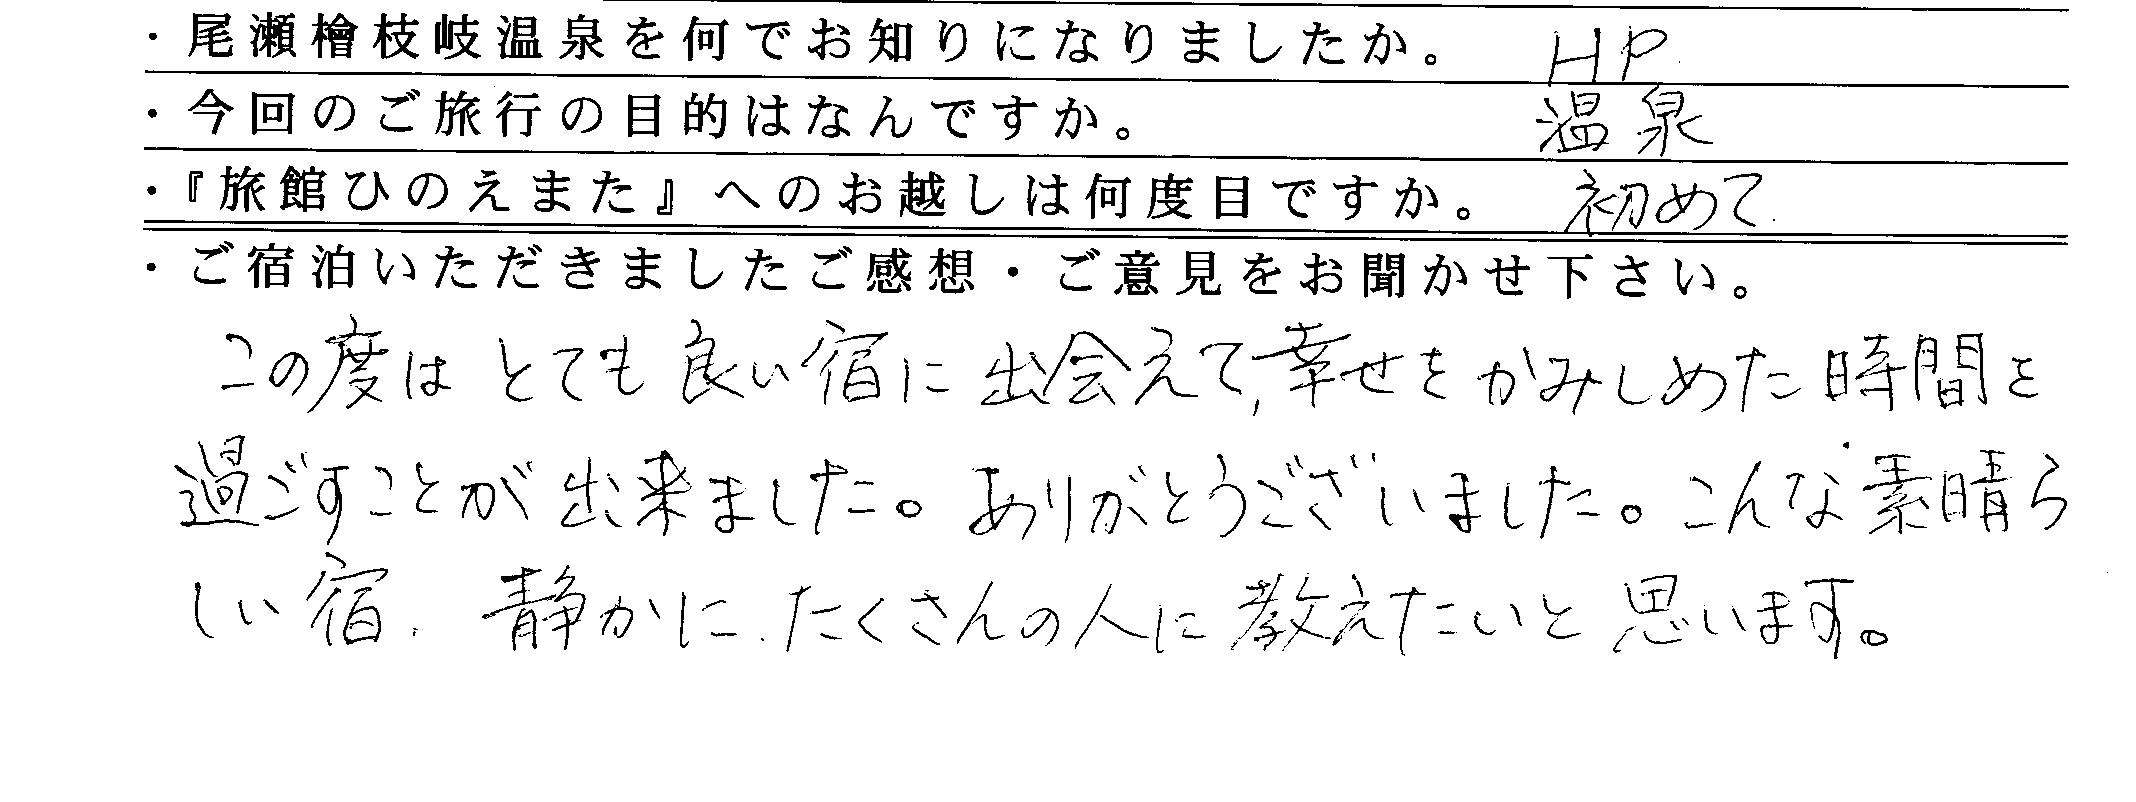 ・尾瀬檜枝岐温泉を何でお知りになりましたか。 HP
・今回のご旅行の目的はなんですか。 温泉
・『旅館ひのえまた』へのお越しは何度目ですか。 初めて
・ご宿泊いただきましたご感想・ご意見をお聞かせ下さい。
この度は とても 良い宿に 出会えて、幸せを かみしめた 時間を
過ごすことが 出来ました。ありがとうございました。こんな 素晴ら
しい 宿、静かに、たくさんの人に 教えたいと 思います。